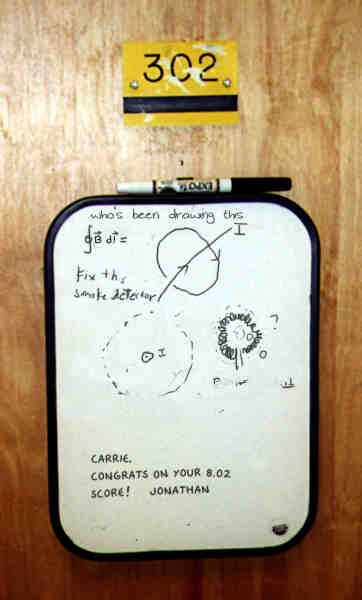 302
EXPO
who's been drawing this
∮B⃗ dl⃗ =
I
Fix this
smoke detector
I
?
CARRIE,
CONGRATS ON YOUR 8.02
SCORE! JONATHAN